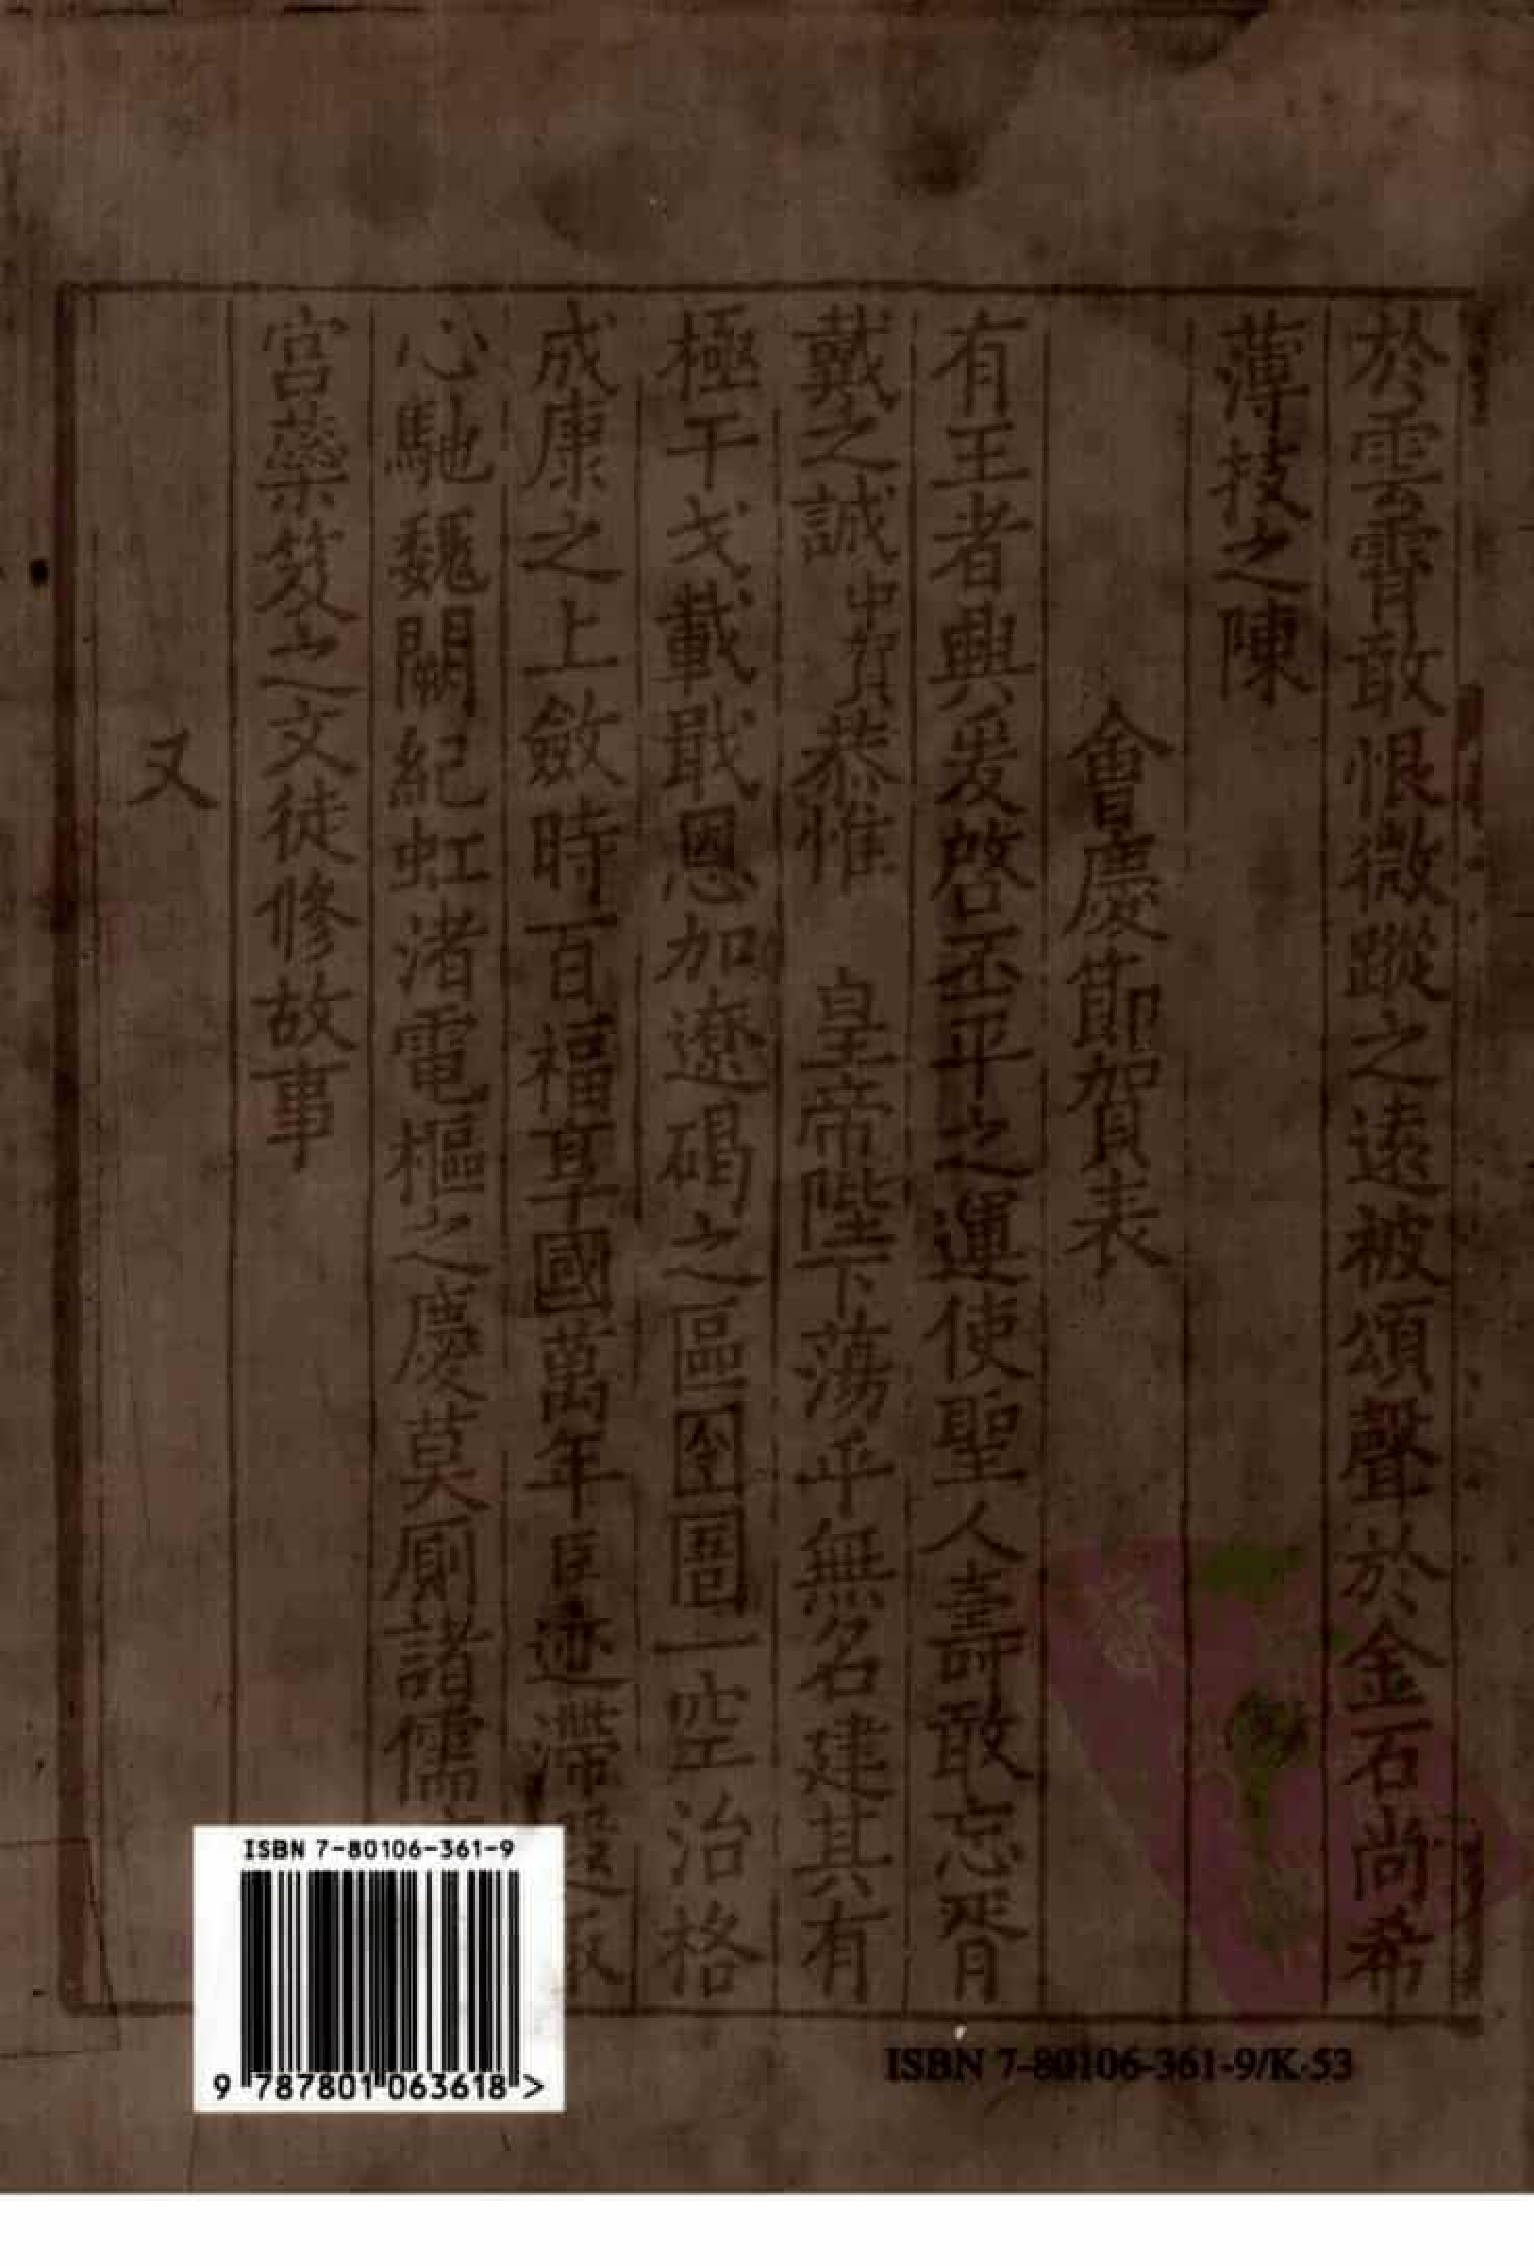 於雲霄敢恨微蹤之遠被頌聲於金石尚希
薄技之陳
會慶節賀表
有王者興爰啓丕平之運使聖人壽敢忘胥
戴之誠中賀恭惟 皇帝陛下蕩乎無名建其有
極干戈載戢恩加遼碣之區囹圄一空治格
成康之上斂時百福享國萬年臣迹滯
心馳魏闕紀虹渚電樞之慶莫厠諸儒
宫蘂笈之文徒修故事
又
ISBN 7-80106-361-9
9 787801 063618 >
ISBN 7-80106-361-9/K·53